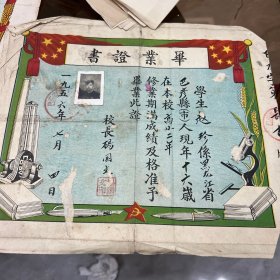 畢業證書
學生赵珍係黑龙江省
巴彥縣(市)人現年十六歲
在本校高小二年
修業期滿成績及格准予
畢業此證
校長
一九五六年七月四日